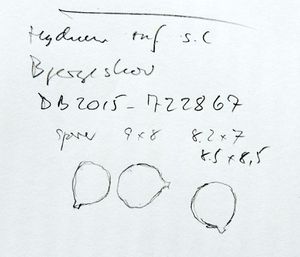 Hydnum ruf s.l
Bjergskov
DB2015-722867
sporer 9x8 8.2x7
8.5x8,5